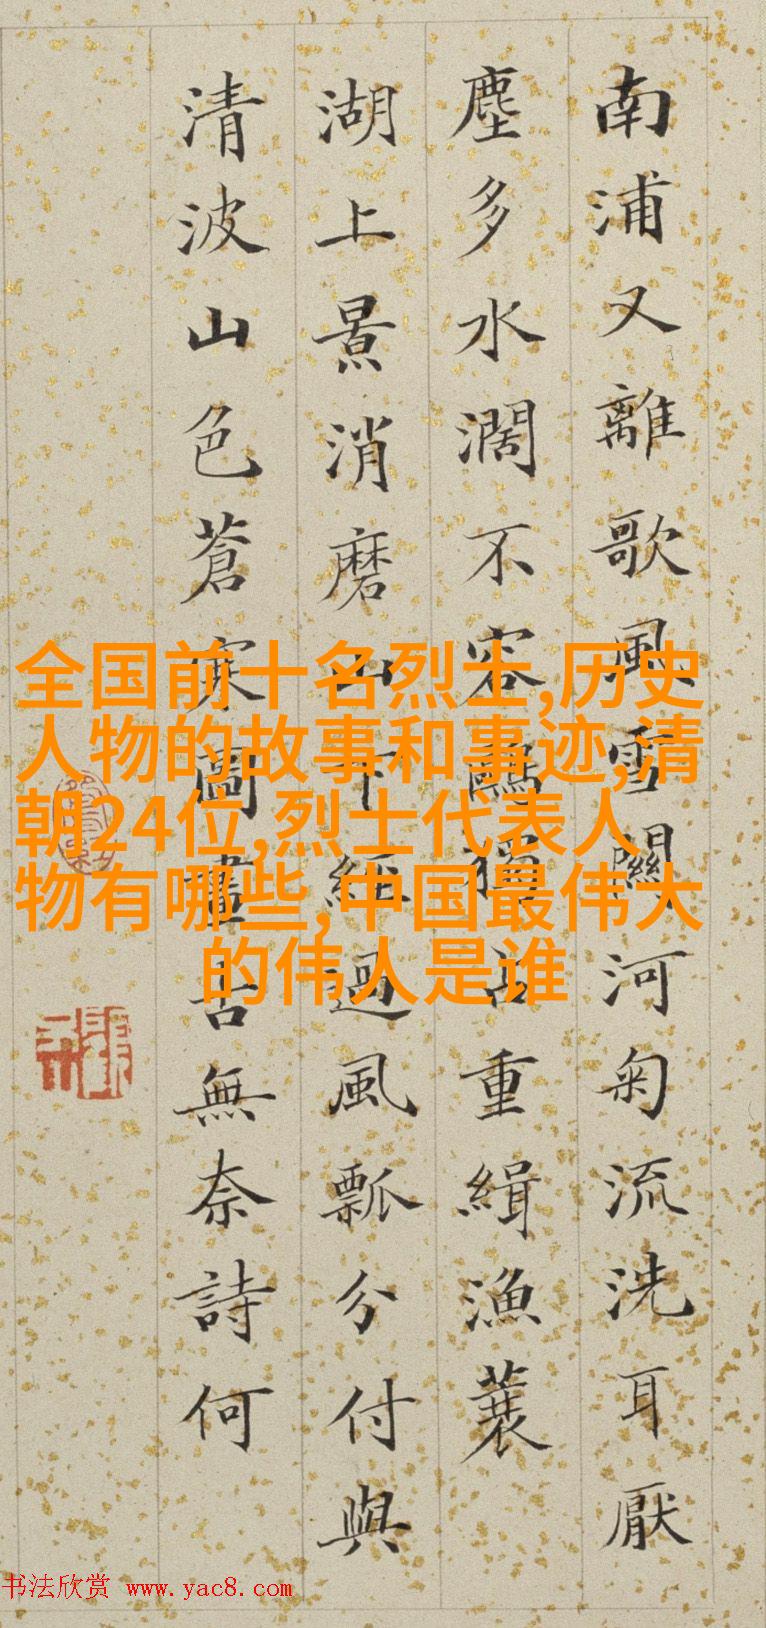 南浦又離歌風雪關河匊流洗耳厭
塵多水濶不容鷗獨占重緝漁蓑
湖上景消磨山下經過風瓢分付與
清波山色蒼寒圖畫古無奈詩何
全国前十名烈士,历史
人物的故事和事迹,清
朝24位,烈士代表人
物有哪些,中国最伟大
的伟人是谁
书法欣赏 www.yac8.com